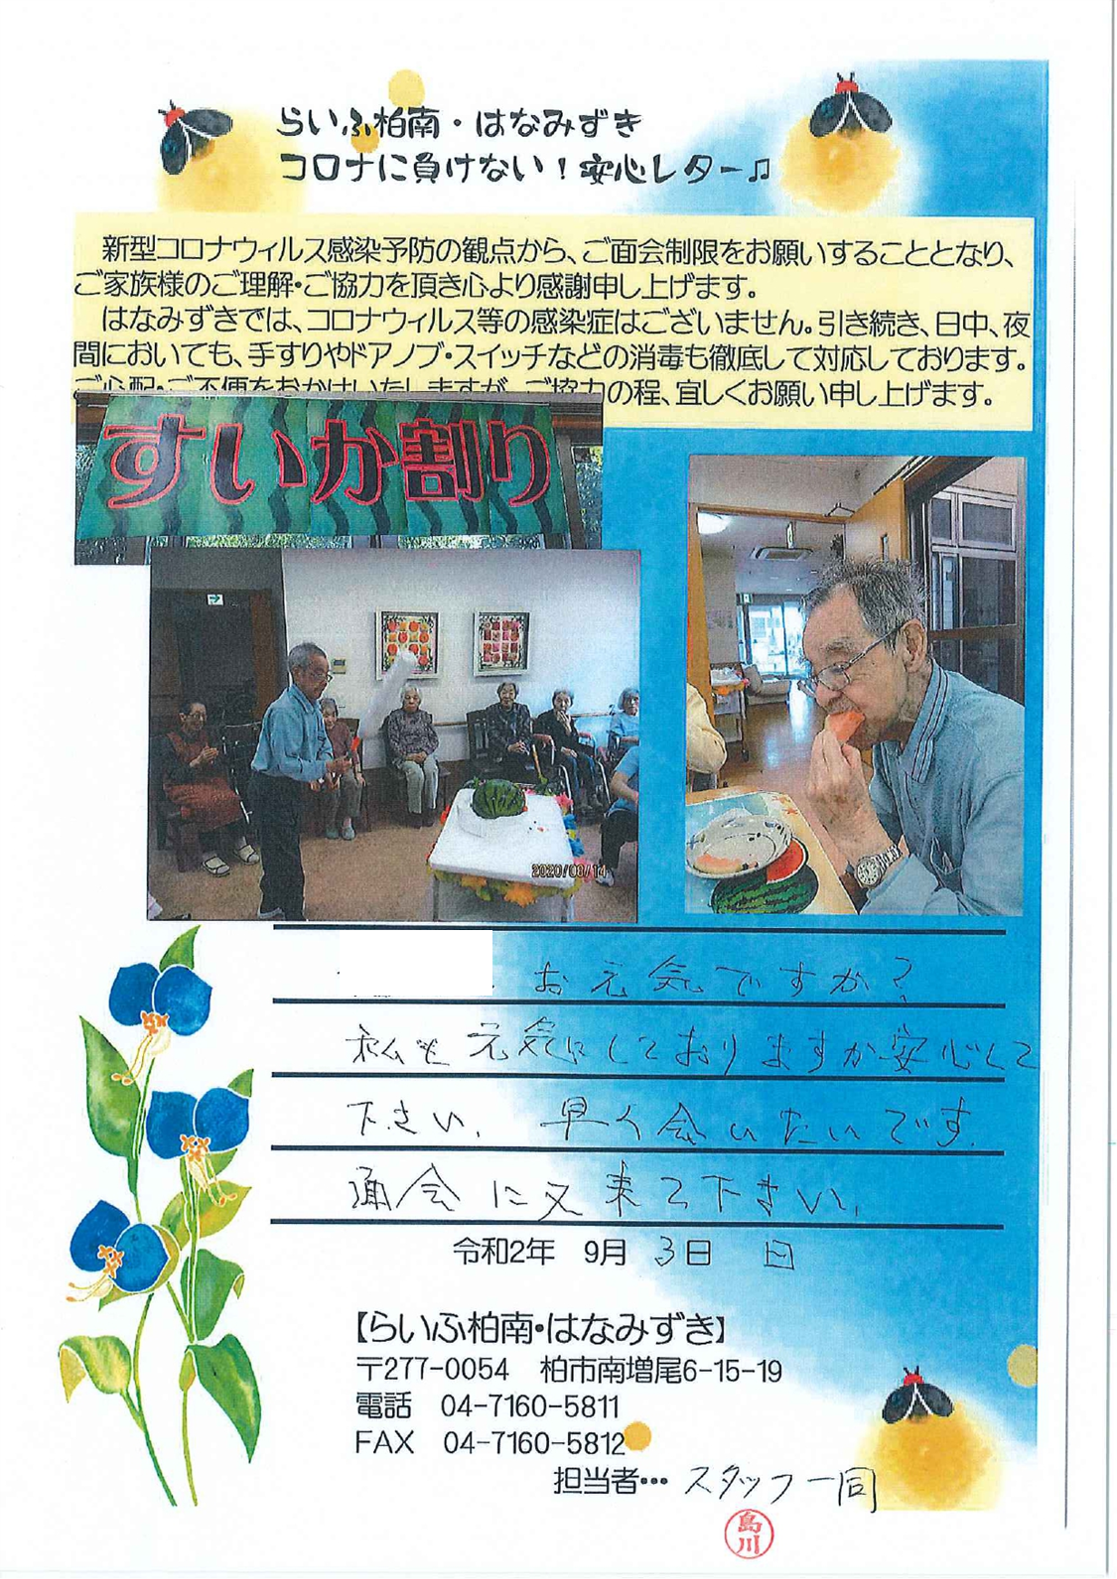 らいふ柏南・はなみずき
コロナに負けない！安心レター♫
新型コロナウィルス感染予防の観点から、ご面会制限をお願いすることとなり、
ご家族様のご理解・ご協力を頂き心より感謝申し上げます。
はなみずきでは、コロナウィルス等の感染症はございません。引き続き、日中、夜
間においても、手すりやドアノブ・スイッチなどの消毒も徹底して対応しております。
ご心配・ご不便をおかけいたしますが、ご協力の程、宜しくお願い申し上げます。
すいか割り
2020/08/14
お元気ですか？
私も元気にしておりますか安心して
下さい、早く会いたいです。
面会に又来て下さい。
令和2年 9月 3日 日
【らいふ柏南・はなみずき】
〒277-0054 柏市南増尾6-15-19
電話 04-7160-5811
FAX 04-7160-5812
担当者… スタッフ一同
島川